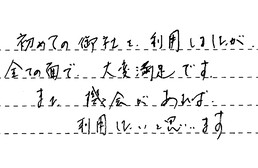 初めての御社を利用しましたが
全ての面で大変満足です
また機会があれば
利用したいと思います